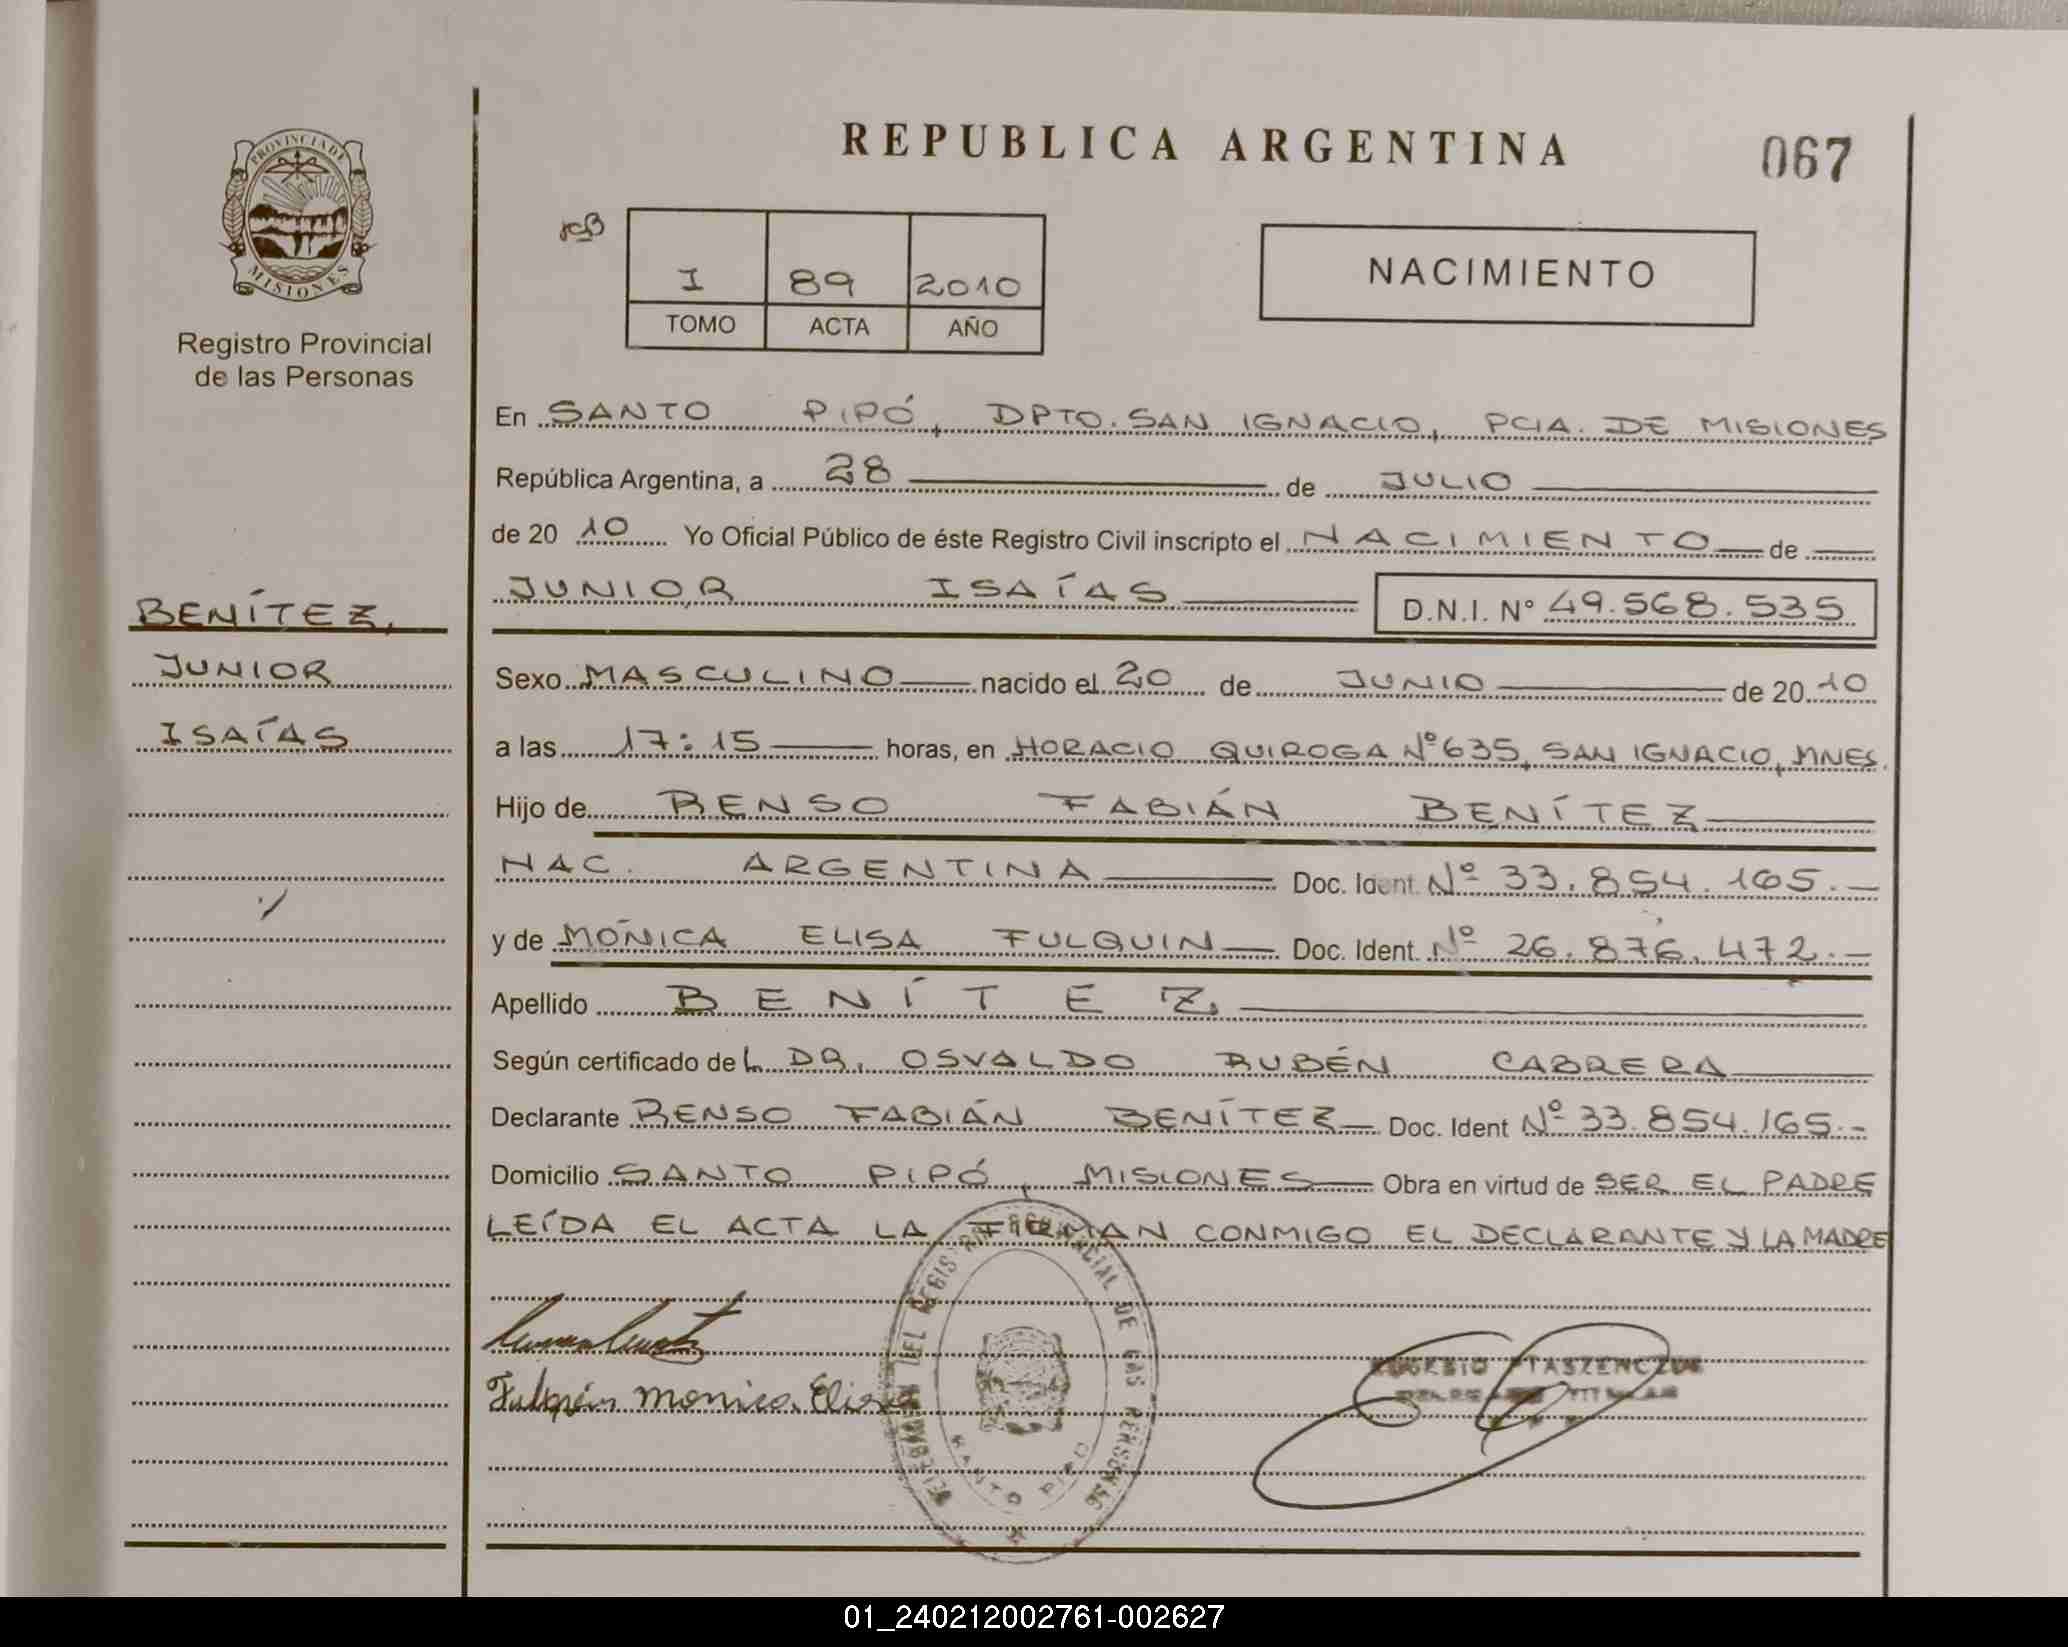 REPUBLICA ARGENTINA
067
PROVINCIA DE
MISIONES
Registro Provincial
de las Personas
I 89 2010
TOMO ACTA AÑO
NACIMIENTO
En SANTO PIPÓ, DPTO. SAN IGNACIO, PCIA. DE MISIONES
República Argentina, a 28 de JULIO
de 20 10 Yo Oficial Público de éste Registro Civil inscripto el NACIMIENTO de
JUNIOR ISAÍAS D.N.I. N° 49.568.535
BENÍTEZ,
JUNIOR
ISAÍAS
Sexo MASCULINO nacido el 20 de JUNIO de 20 10
a las 17:15 horas, en HORACIO QUIROGA Nº 635, SAN IGNACIO, MNES.
Hijo de RENSO FABIÁN BENÍTEZ
NAC. ARGENTINA Doc. Ident. Nº 33.854.165.-
y de MÓNICA ELISA FULQUIN Doc. Ident. Nº 26.876.472.-
Apellido BENÍTEZ
Según certificado del DR. OSVALDO RUBÉN CABRERA
Declarante RENSO FABIÁN BENÍTEZ Doc. Ident Nº 33.854.165.-
Domicilio SANTO PIPÓ, MISIONES Obra en virtud de SER EL PADRE
LEÍDA EL ACTA LA FIRMAN CONMIGO EL DECLARANTE Y LA MADRE
Fulquin Monica Elisa
DEL REGISTRO PROVINCIAL DE LAS PERSONAS
SANTO PIPO
01_240212002761-002627